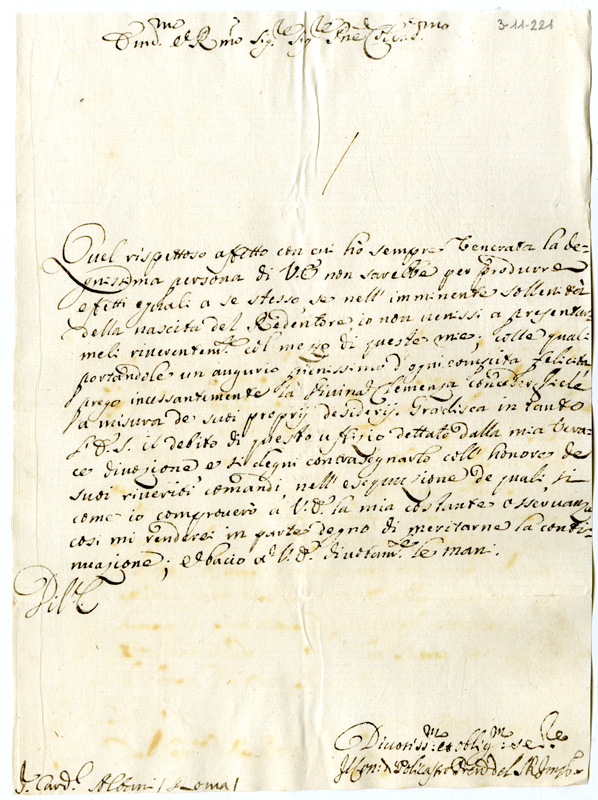 3-11-221
Quel rispettoso affetto con cui hò sempre Venerata la de-
gnissima persona di V.E. non sarebbe per produrre
effetti equali a se stesso se nell' imminente sollenità
della nascita del Redentore io non venissi a presentar-
meli riverentem.te col mezzo di queste mie; colle quali
portandole un augurio pienissimo d'ogni compita felicità
prego incessantemente la Divina Clemenza concederglielè
a misura de suoi proprij desiderij. Gradisca in tanto
il debito di questo uffizio dettato dalla mia Vera-
ce divozione e si degni contrasegnarlo coll' honore de
suoi riveriti comandi, nell' esequuzione de quali si
come io comproverò a V.E. la mia costante osservanza
cosi mi renderei in parte degno di meritarne la conti-
nuazione; e bacio a V.E. divotam.te le mani.
Divotiss.mo et oblig.mo
S.r Card.l Albani / Roma /